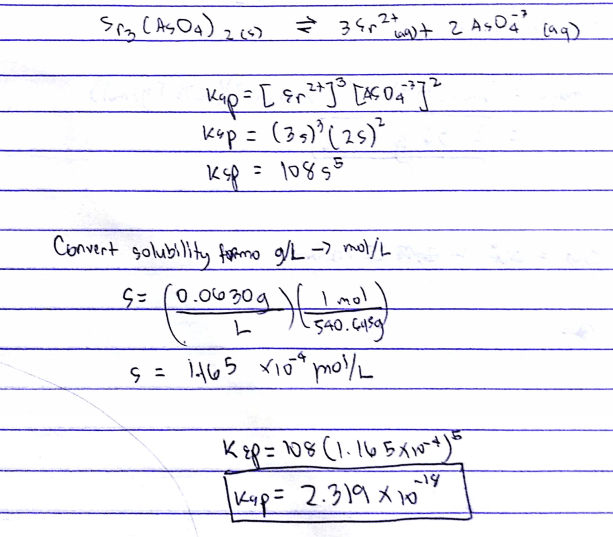 Sr₃(AsO₄)₂(s) ⇌ 3Sr²⁺(aq) + 2 AsO₄⁻³(aq)
Ksp = [Sr²⁺]³ [AsO₄⁻³]²
Ksp = (3s)³(2s)²
Ksp = 108s⁵
Convert solubility g/L → mol/L
s = (0.0630g / L)(1 mol / 540.645g)
s = 1.165 ×10⁻⁴ mol/L
Ksp = 108(1.165×10⁻⁴)⁵
Ksp = 2.319 × 10⁻¹⁸